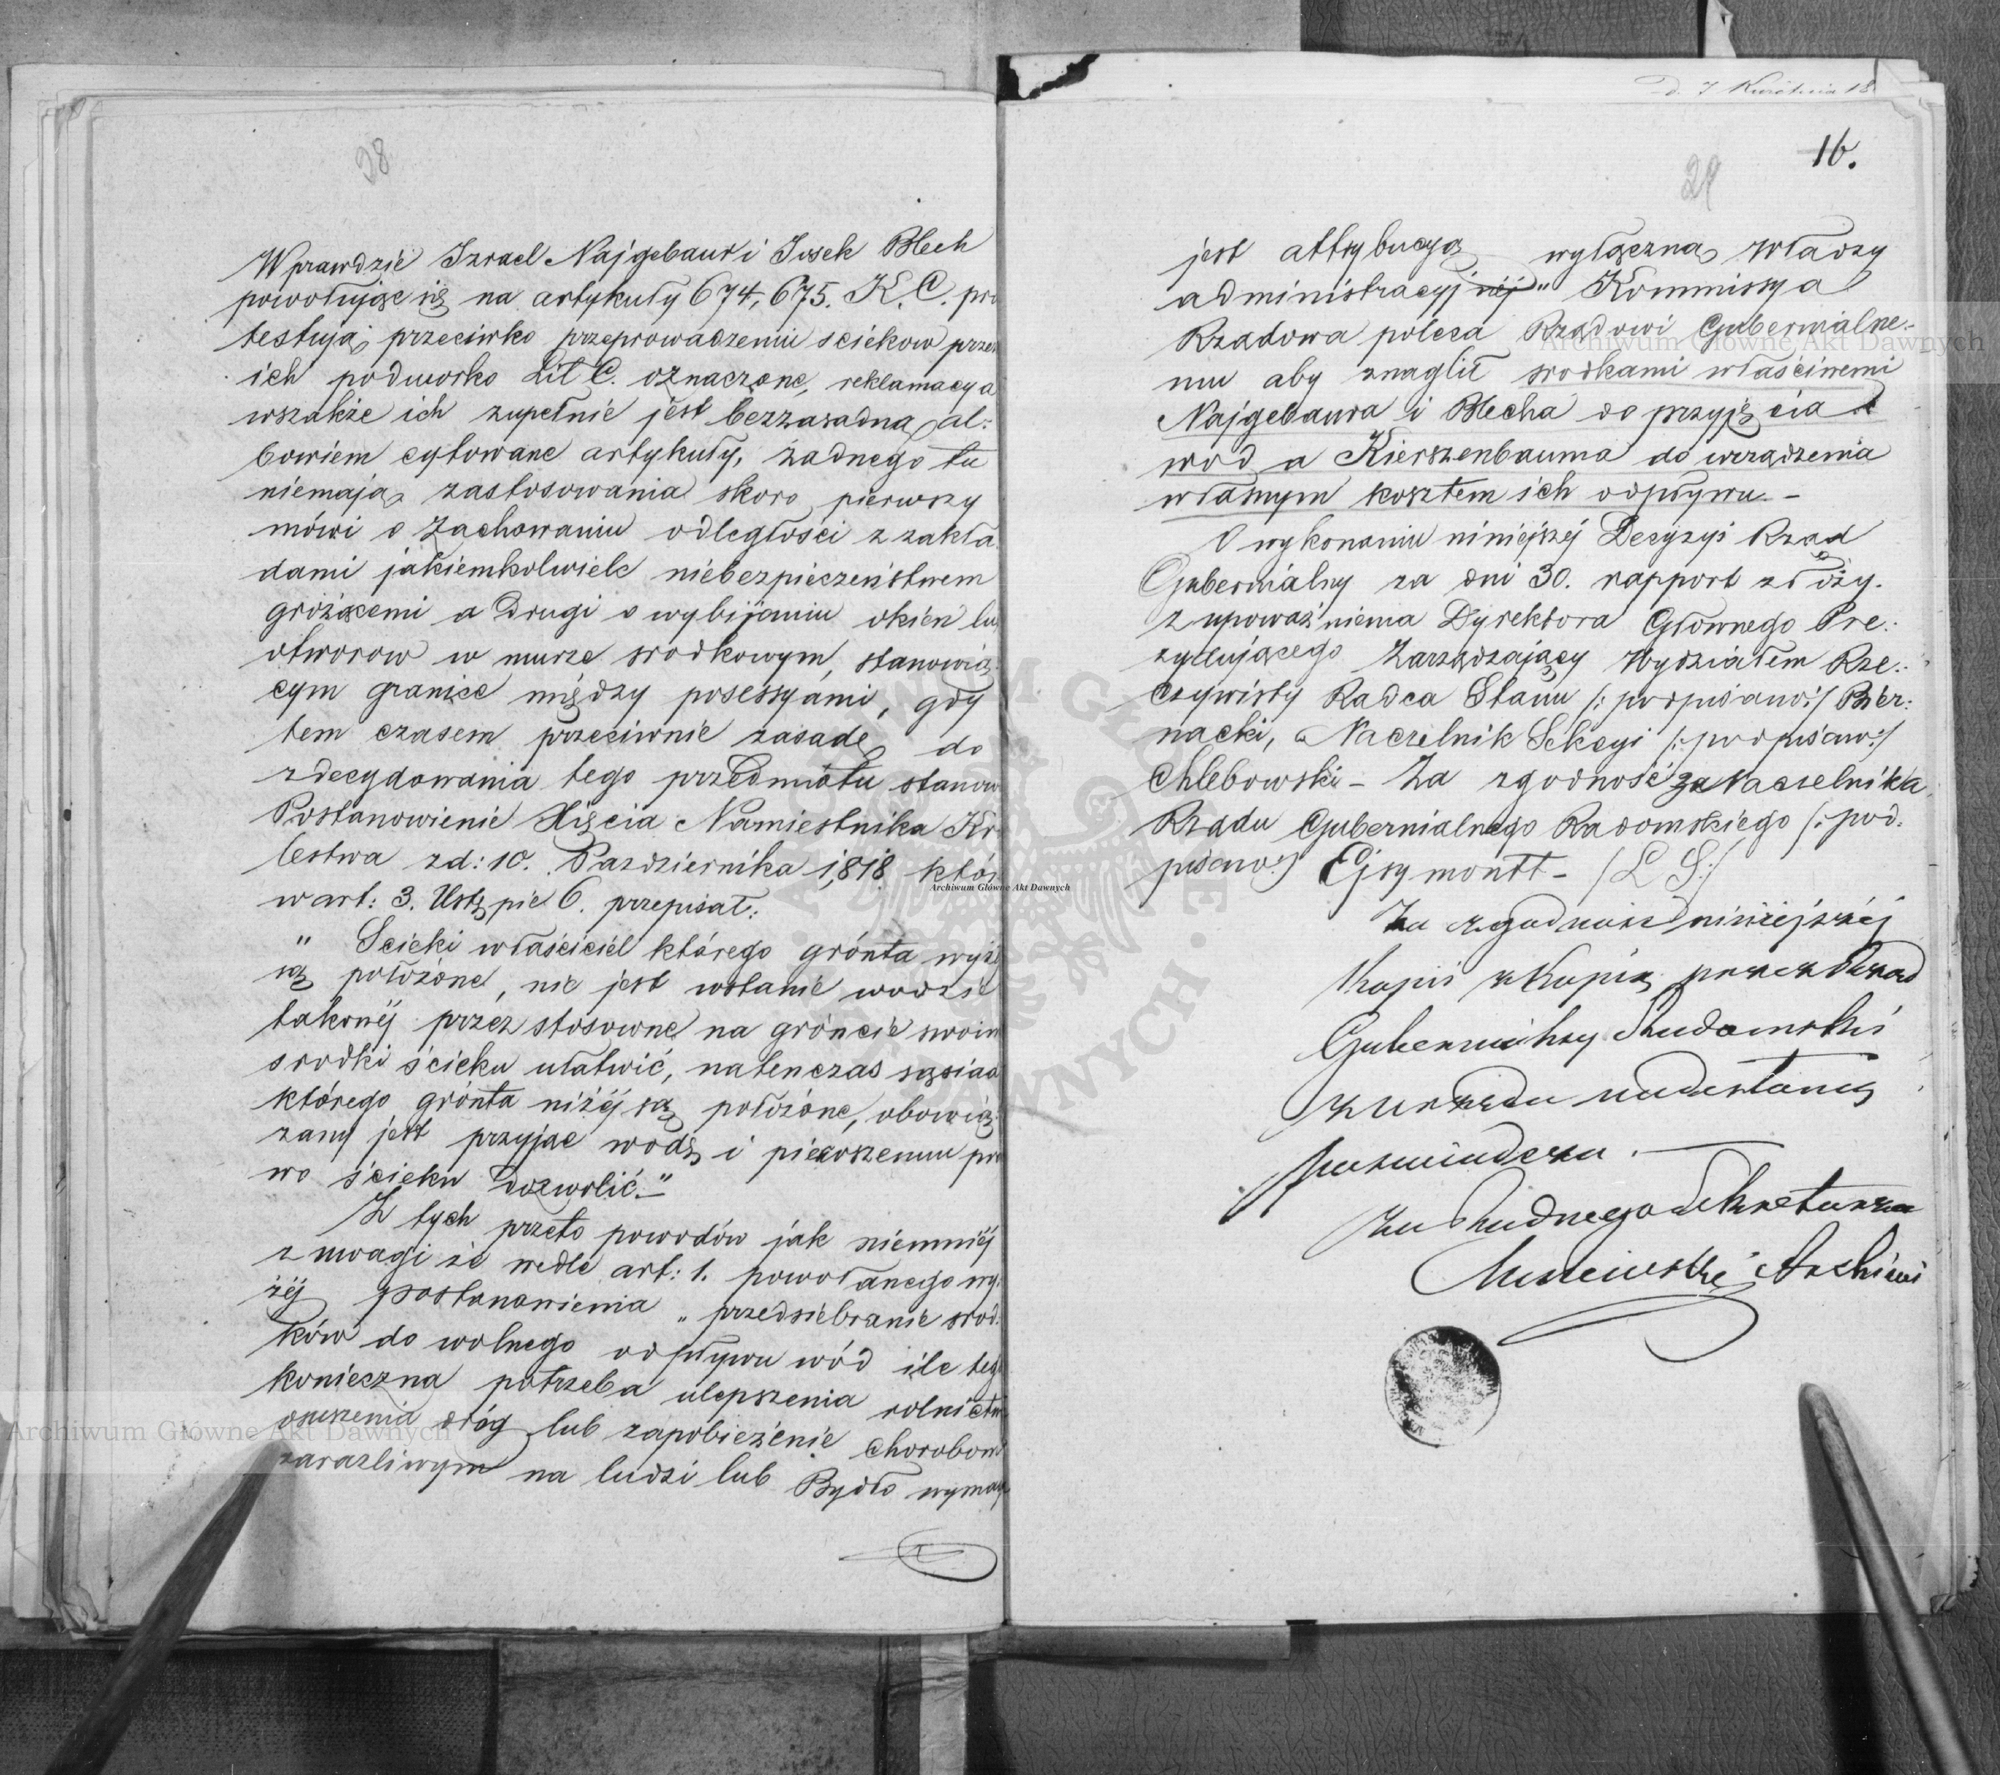 98
Wprawdzie Izrael Najgebaur i Josek Blech
powołując się na artykuły 674, 675. K. C. pro
testują, przeciwko przeprowadzeniu scieków przez
ich podworko Lit C. oznaczone, reklamacya
wszakże ich zupełnie jest bezzasadna, al:
bowiem cytowane artykuły, żadnego tu
niemają zastosowania skoro pierwszy
mówi o zachowaniu odległości z zakła
dami jakiemkolwiek niebezpieczeństwem
grożącemi a drugi o wybijaniu okien lu
otworow w murze srodkowym, stanowią:
cym granice między posessyami, gdy
tem czasem przeciwnie zasadę do
zdecydowania tego przedmiotu stanow
Postanowienie Xięcia Namiestnika Kró
lestwa z d: 10. Pazdziernika 1818 któr
w art: 3. Ustępie 6. przepisał:
" Scieki właściciel którego grónta wyżé
są położone, nie jest wstanie wodzie
takowéj przez stosowne na gróncie swoim
srodki ścieku ułatwić, natenczas sąsiad
którego grónta niżéj są położone, obowią:
zany jest przyjąc wodę i pierwszemu pra
wo ścieku dozwolić.–"
Z tych przeto powodów jak niemniéj
z uwagi że wedle art: 1. powołanego wy:
żéj postanowienia „ przedsiebranie srod:
ków do wolnego odpływu wód ile teg
konieczna potrzeba ulepszenia rolnictw
osuszenia dróg lub zapobieżenie chorobom
zarazliwym na ludzi lub Bydło wymag
D. 7 Kwietnia 18
16.
29
jest attrybucyą wyłączną Władzy
administracyjnéj" Kommissya
Rządowa poleca Rządowi Gubernialne:
mu aby znaglił srodkami właściwemi
Najgebaura i Blecha do przyjęcia
wód a Kierszenbauma do urządzenia
własnym kosztem ich odpływu. –
O wykonaniu niniejszéj Decyzyi Rząd
Gubernialny za dni 30. rapport złoży.
z upoważnienia Dyrektora Głównego Pre:
zydującego Zarządzający Wydziałem Rze:
czywisty Radca Stanu /: podpisano :/ Bier:
nacki, Naczelnik Sekcyi /: podpisano :/
Chlebowski – Za zgodność za Naczelnika
Rządu Gubernialnego Radomskiego /: pod:
pisano :/ Ejsymontt – /L S:/
Za zgodność niniejszéj
Kopii z Kopią przez Rząd
Gubernialny Radomski
z urzędu nadesłaną
poswiadcza. —
za Radnego Sekretarza
Archiwi
Archiwum Główne Akt Dawnych
Archiwum Główne Akt Dawnych
Archiwum Główne Akt Dawnych
ARCHIWUM GŁÓWNE AKT DAWNYCH